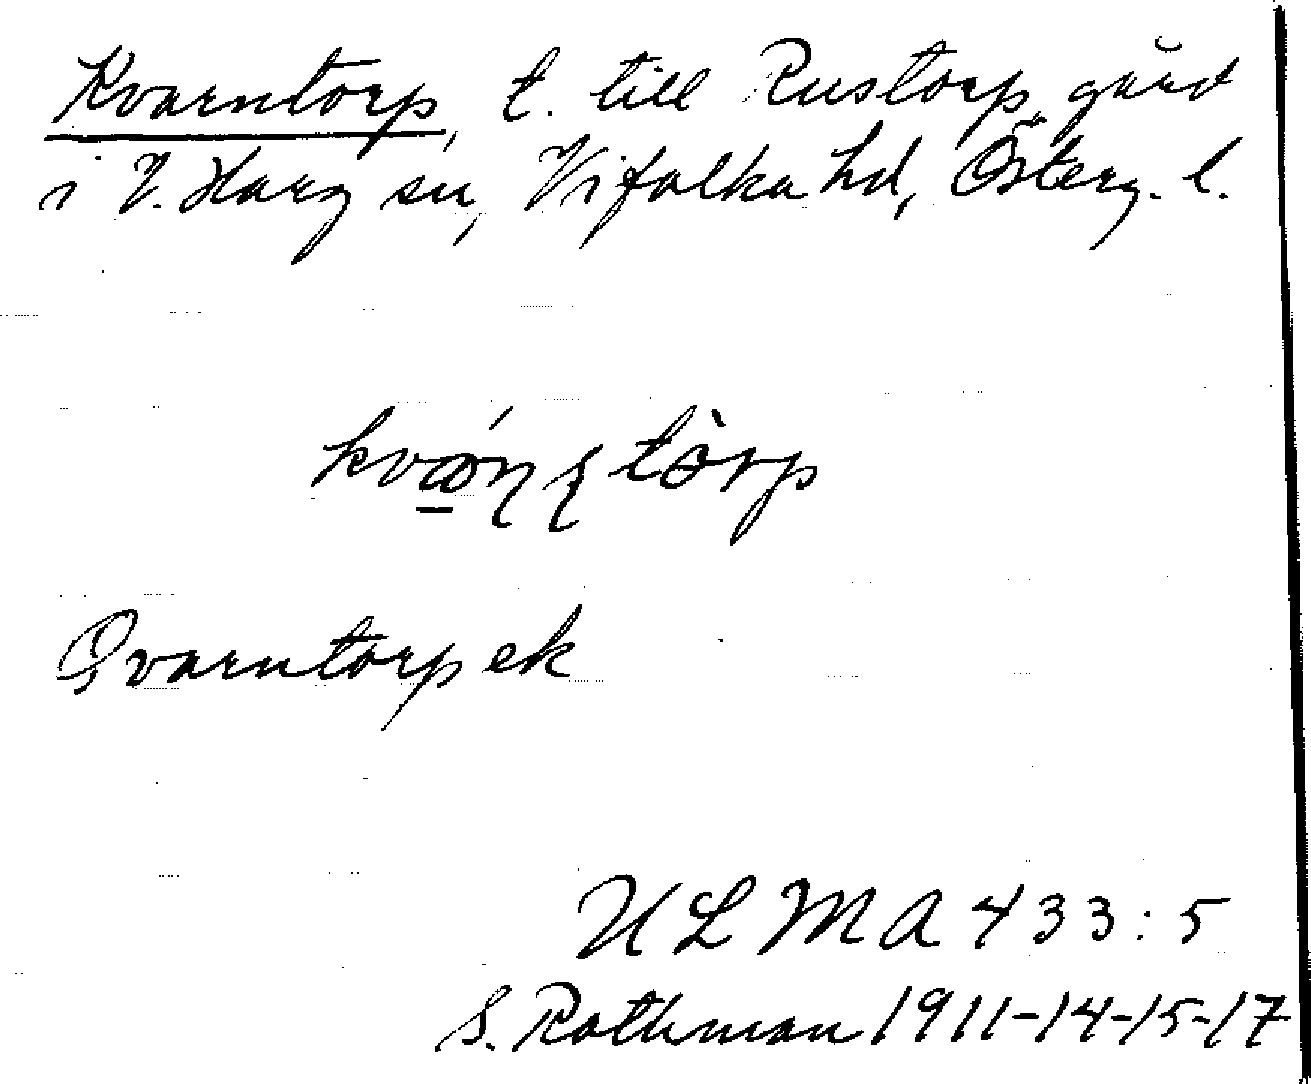 Kvarntorp, t. till Rustorp, gård
i V. Harg sn, Vifolka hd, Österg. l.
Qvarntorp ek
ULMA 433:5
S. Rothman 1911-14-15-17